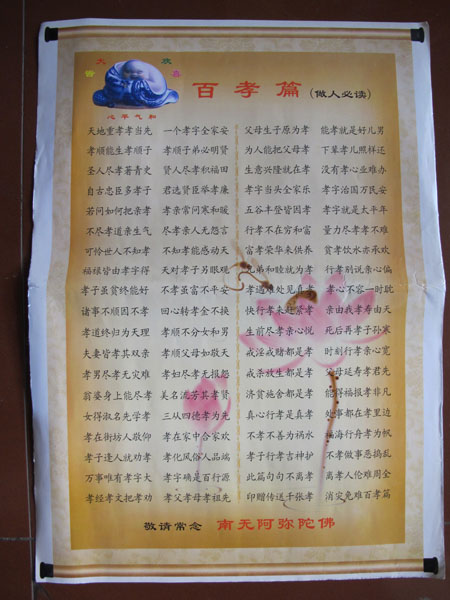 大 欢
皆 喜
心平气和
百孝篇(做人必读)
天地重孝孝当先 一个孝字全家安 父母生子原为孝 能孝就是好儿男
孝顺能生孝顺子 孝顺子弟必明贤 为人能把父母孝 下辈孝儿照样还
圣人尽孝著青史 贤人尽孝积福田 生意兴隆就在孝 没有孝心业难办
自古忠臣多孝子 君选贤臣举孝廉 孝字当头全家乐 孝字治国万民安
若问如何把亲孝 孝亲常问寒和暖 五谷丰登皆因孝 孝字就是太平年
不尽孝道亲生气 尽孝亲人无怨言 行孝不在穷和富 量力尽孝孝不难
可怜世人不知孝 不知孝能感动天 富孝荣华来供养 贫孝饮水亦承欢
福禄皆由孝字得 天对孝子另眼观 兄弟和睦就为孝 行孝别说亲心偏
孝子虽贫终能好 不孝虽富不平安 孝遇难处见真孝 孝心不容一时耽
诸事不顺因不孝 回心转孝金不换 快行孝来赶紧孝 亲由我孝寿由天
孝道终归为天理 孝顺不分女和男 生前尽孝亲心悦 死后再孝子孙寒
夫妻皆孝其双亲 孝顺父母如敬天 戒淫戒赌都是孝 时刻行孝亲心宽
孝男尽孝无灾难 孝妇尽孝无报怨 戒杀放生都是孝 父母延寿孝君先
翁婆身上能尽孝 美名流芳其孝贤 济贫施舍都是孝 能得福报孝非凡
女得淑名先学孝 三从四德孝为先 真心行孝是真孝 处事都在孝里边
孝在街坊人敬仰 孝在家中合家欢 不孝不善为祸水 福海行舟孝为帆
孝子逢人就劝孝 孝化风俗人品端 孝子行孝吉神护 不孝做事恶捣乱
万事唯有孝字大 孝字确是百行源 此篇句句不离孝 离孝人伦难周全
孝经孝文把孝劝 孝父孝母孝祖先 印赠传送千张孝 消灾免难百孝篇
敬请常念 南无阿弥陀佛